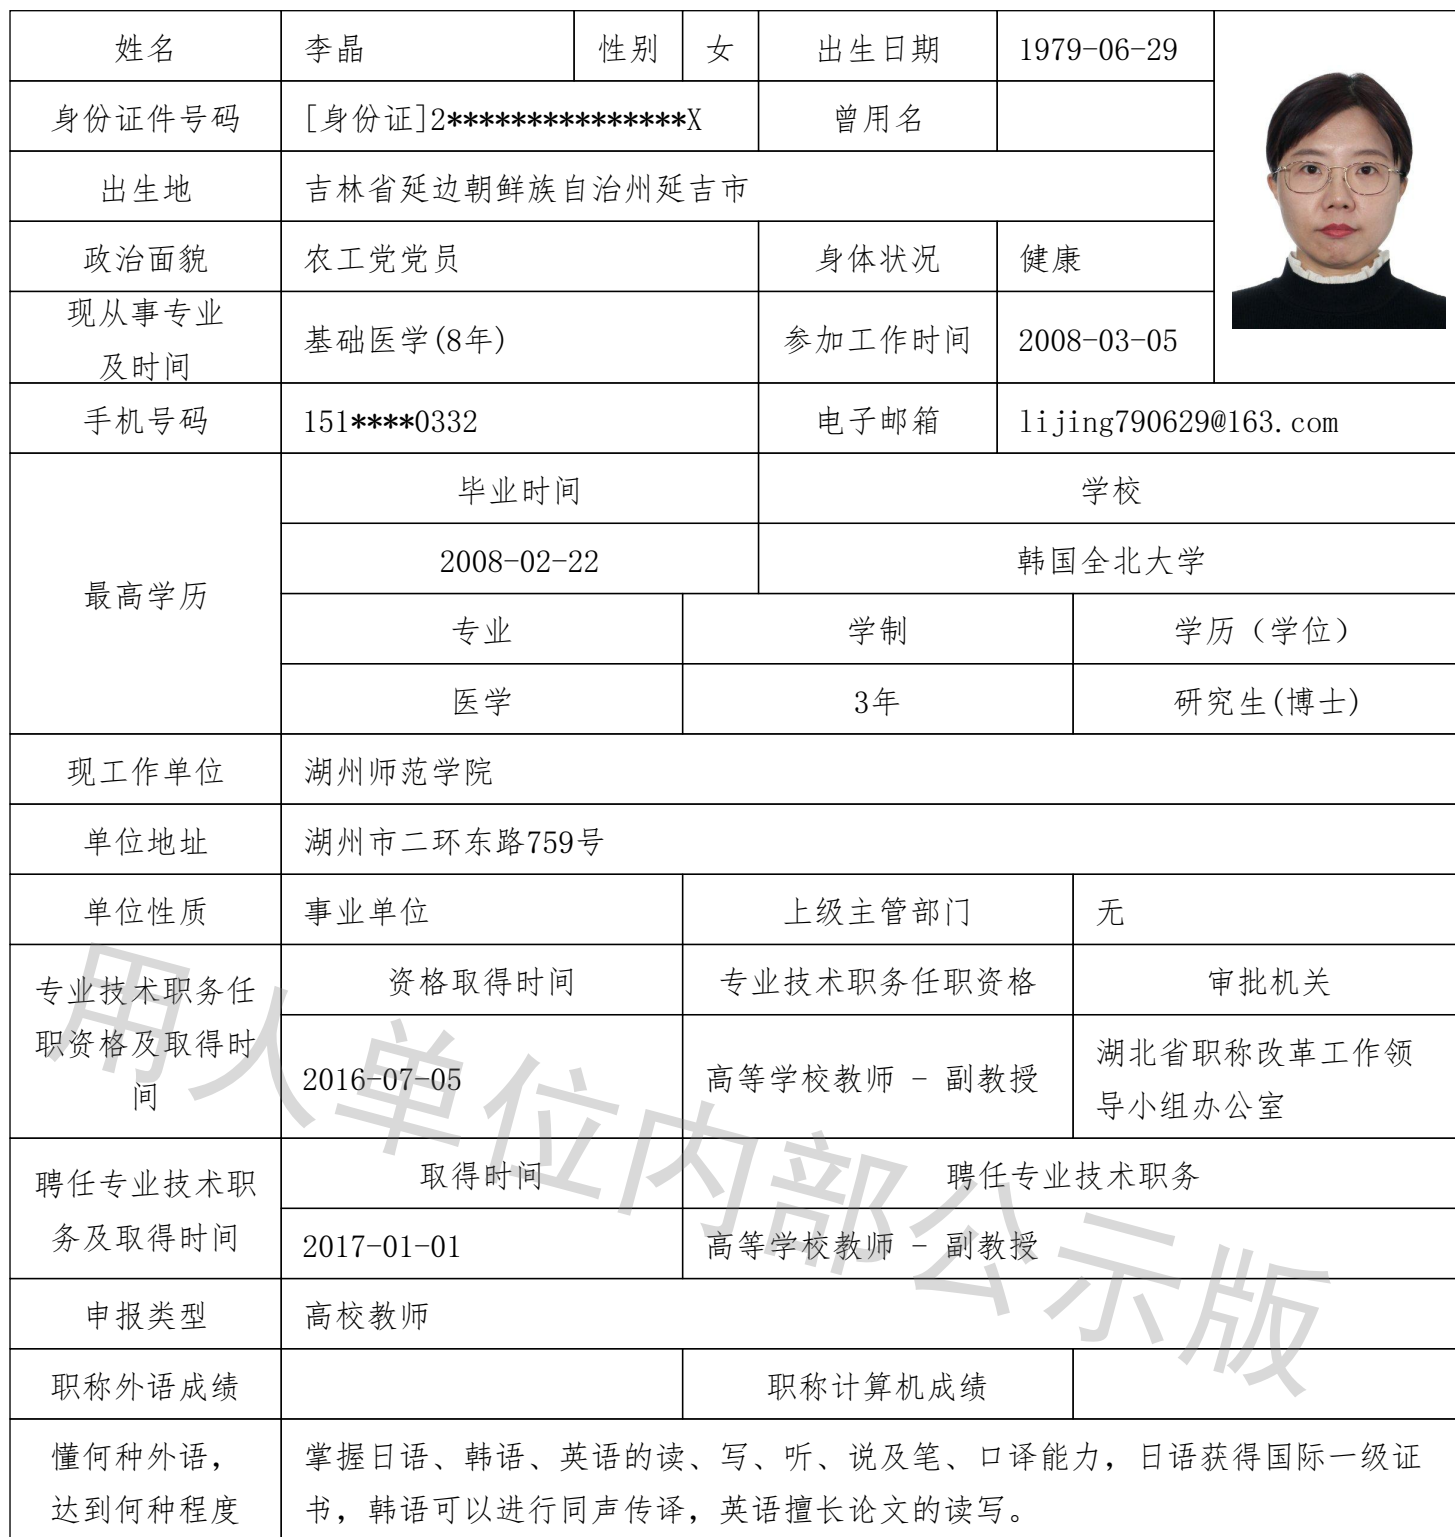 姓名 李晶 性别 女 出生日期 1979-06-29
身份证件号码 [身份证]2***************X 曾用名
出生地 吉林省延边朝鲜族自治州延吉市
政治面貌 农工党党员 身体状况 健康
现从事专业
及时间 基础医学(8年) 参加工作时间 2008-03-05
手机号码 151****0332 电子邮箱 lijing790629@163.com
最高学历
毕业时间 学校
2008-02-22 韩国全北大学
专业 学制 学历（学位）
医学 3年 研究生(博士)
现工作单位 湖州师范学院
单位地址 湖州市二环东路759号
单位性质 事业单位 上级主管部门 无
专业技术职务任
职资格及取得时
间
资格取得时间 专业技术职务任职资格 审批机关
2016-07-05 高等学校教师 - 副教授 湖北省职称改革工作领
导小组办公室
聘任专业技术职
务及取得时间
取得时间 聘任专业技术职务
2017-01-01 高等学校教师 - 副教授
申报类型 高校教师
职称外语成绩 职称计算机成绩
懂何种外语，
达到何种程度
掌握日语、韩语、英语的读、写、听、说及笔、口译能力，日语获得国际一级证
书，韩语可以进行同声传译，英语擅长论文的读写。
用人单位内部公示版